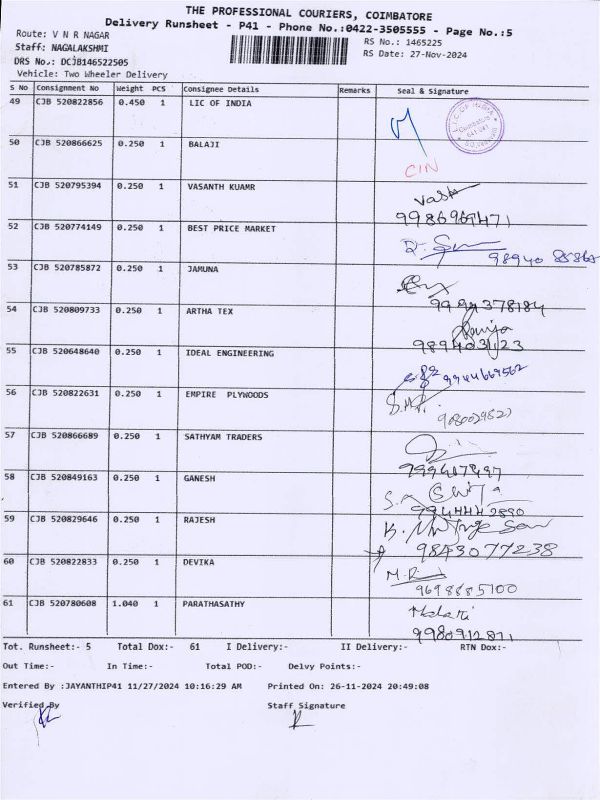 THE PROFESSIONAL COURIERS, COIMBATORE
Delivery Runsheet - P41 - Phone No.:0422-3505555 - Page No.:5
Route: V N R NAGAR
RS No.: 1465225
Staff: NAGALAKSHMI
RS Date: 27-Nov-2024
DRS No.: DCJB146522505
Vehicle: Two Wheeler Delivery
S No Consignment No Weight PCS Consignee Details Remarks Seal & Signature
49 CJB 520822856 0.450 1 LIC OF INDIA
50 CJB 520866625 0.250 1 BALAJI
CIN
51 CJB 520795394 0.250 1 VASANTH KUAMR
52 CJB 520774149 0.250 1 BEST PRICE MARKET
53 CJB 520785872 0.250 1 JAMUNA
9994378184
54 CJB 520809733 0.250 1 ARTHA TEX
55 CJB 520648640 0.250 1 IDEAL ENGINEERING
9944669562
56 CJB 520822631 0.250 1 EMPIRE PLYWOODS
57 CJB 520866689 0.250 1 SATHYAM TRADERS
58 CJB 520849163 0.250 1 GANESH
9944442890
59 CJB 520829646 0.250 1 RAJESH
9843077238
60 CJB 520822833 0.250 1 DEVIKA
61 CJB 520780608 1.040 1 PARATHASATHY
Tot. Runsheet:- 5 Total Dox:- 61 I Delivery:- II Delivery:- RTN Dox:-
Out Time:- In Time:- Total POD:- Delvy Points:-
Entered By :JAYANTHIP41 11/27/2024 10:16:29 AM Printed On: 26-11-2024 20:49:08
Verified By Staff Signature